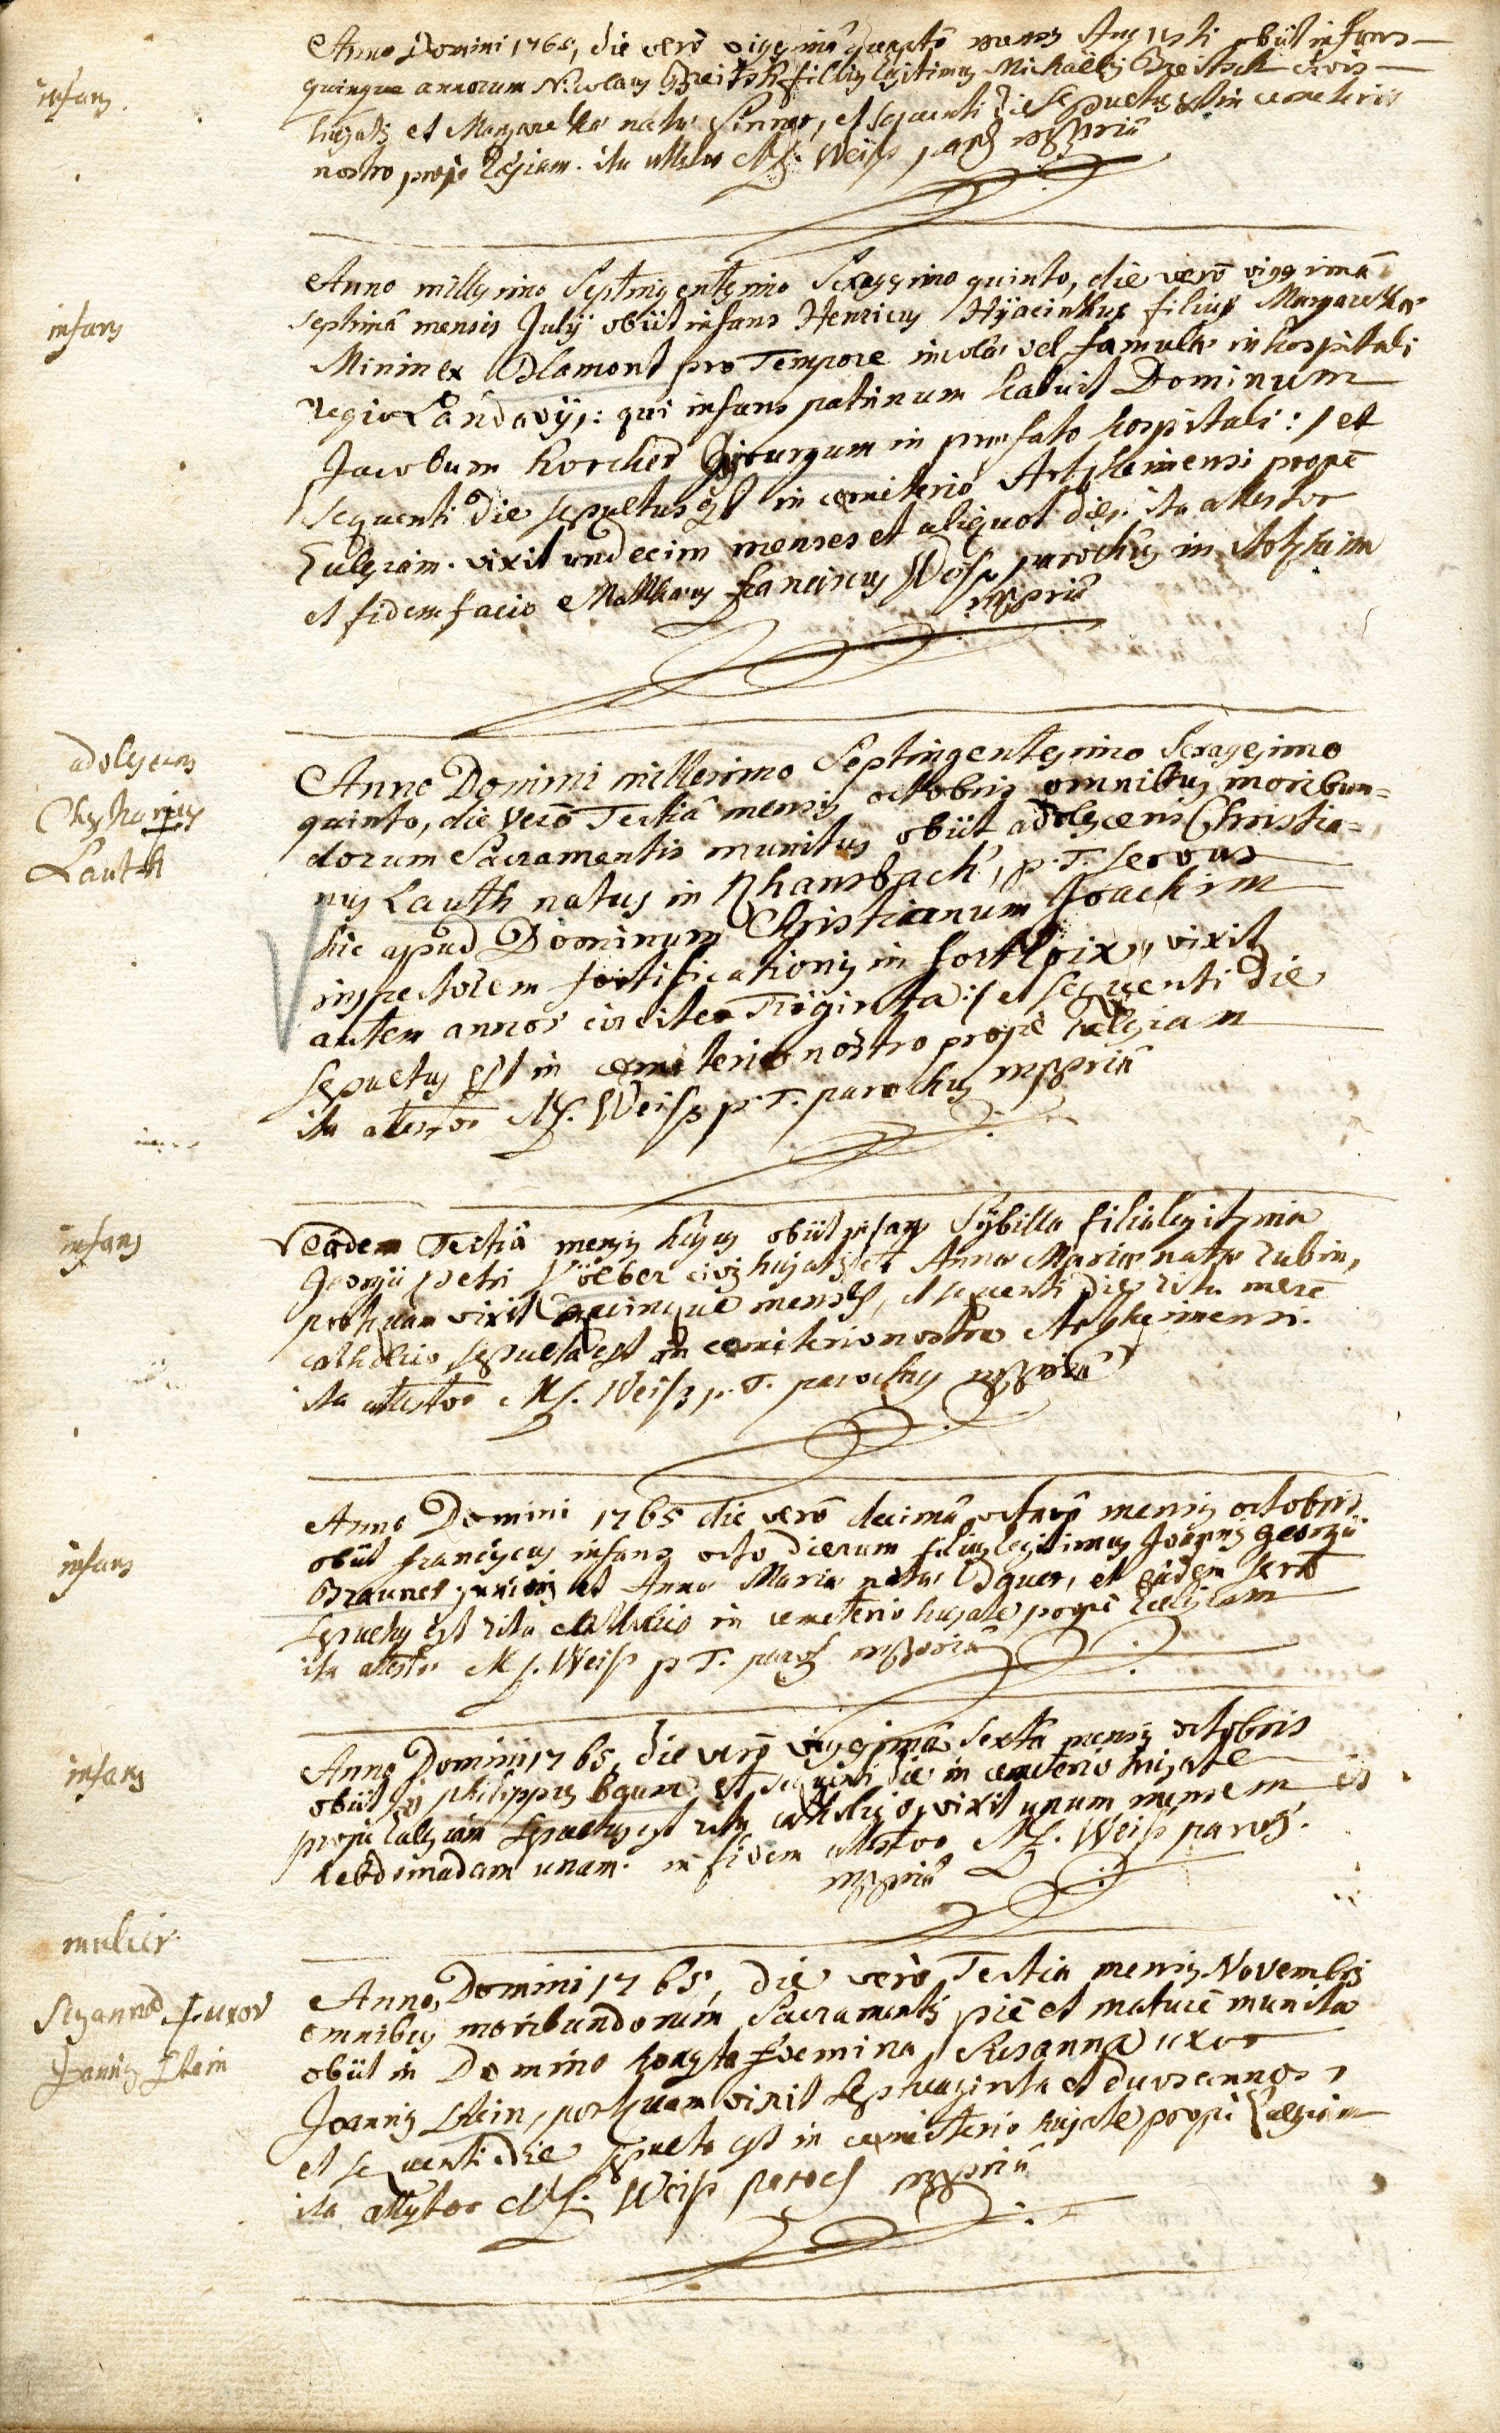 infans.
Anno Domini 1765, die verò viggimâ quartâ mensis Augusti obiit infans
quinque annorum Nicolaus Breitsch filius legitimus Michaëlis Breitsch civis
hujatis et Margaretha nata Sinner, et sequenti die sepultus est in cemeterio
nostro propè Eclesiam. ita attestor MF. Weiss paroch mppriâ
infans
Anno millesimo Septingentesimo Sexagesimo quinto, die verò viggimâ
septimâ mensis Julÿ obiit infans Henricus Hÿacinthus filius Margaretha
Minin ex Blamont pro Tempore incola vel famula in hospitali
regio Landavÿ,: qui infans patrinum habuit Dominum
Jacobum Korcher Chyrurgum in præfato hospitali:/ et
sequenti die sepultus est in cæmiterio Artzheimensi propè
Eclesiam. vixit undecim menses et aliquot dies. ita attestor
et fidem facio Matthæus Franciscus Weiss parochus in Artzheim
mppriâ
adolescens
Christianus
Lauth
Anno Domini millesimo Septingentesimo Sexagesimo
quinto, die verò Tertiâ mensis octobris omnibus moribun=
dorum Sacramentis munitus obiit adolescens Christia=
nus Lauth natus in Rhambach, p.T. servus
hic apud Dominum Christianum Joachim
inspectorem fortificationis in fort Loix, vixit
autem annos circiter Triginta:/ et sequenti die
sepultus est in cæmiterio nostro propè Eclesiam
ita attestor MF. Weiss p.T. parochus mppriâ
infans
Eâdem Tertiâ mensis hujus obiit infans Sÿbilla filia legitima
Georgii Petri Löeber civis hujatis et Annæ Mariæ natæ Rubin,
postquam vixit quinque menses, et sequenti die ritu merè
catholico sepulta est in cæmiterio nostro Artzheimensi.
ita attestor MF. Weiss p.T. parochus mppriâ
infans
Anno Domini 1765 die verò decimâ octavâ mensis octobris
obiit franciscus infans octo dierum filius legitimus Joannis Georgii
Brauner junioris et Annæ Mariæ natæ Bauer, et eâdem serò
sepultus est ritu catholico in cemeterio hujate propè Eclesiam
ita attestor MF. Weiss p T. paroch mppriâ
infans
Anno Domini 1765, die verò viggimâ Sextâ mensis octobris
obiit philippus Baum et sequenti die in cæmeterio hujate
propè Eclesiam sepultus est ritu catholico, vixit unum mensem et
hebdomadam unam. in fidem attestor MF. Weiss paroch.
mppriâ
mulier
Susanna uxor
Joannis Stein
Anno Domini 1765, die verò Tertia mensis Novembris
omnibus moribundorum Sacramentis piè et maturè munita
obiit in Domino honesta foemina Susanna uxor
Joannis Stein, postquam vixit septuaginta et duos annos,
et sequenti die sepulta est in cæmiterio hujate propè Eclesiam
ita attestor MF. Weiss paroch mppriâ